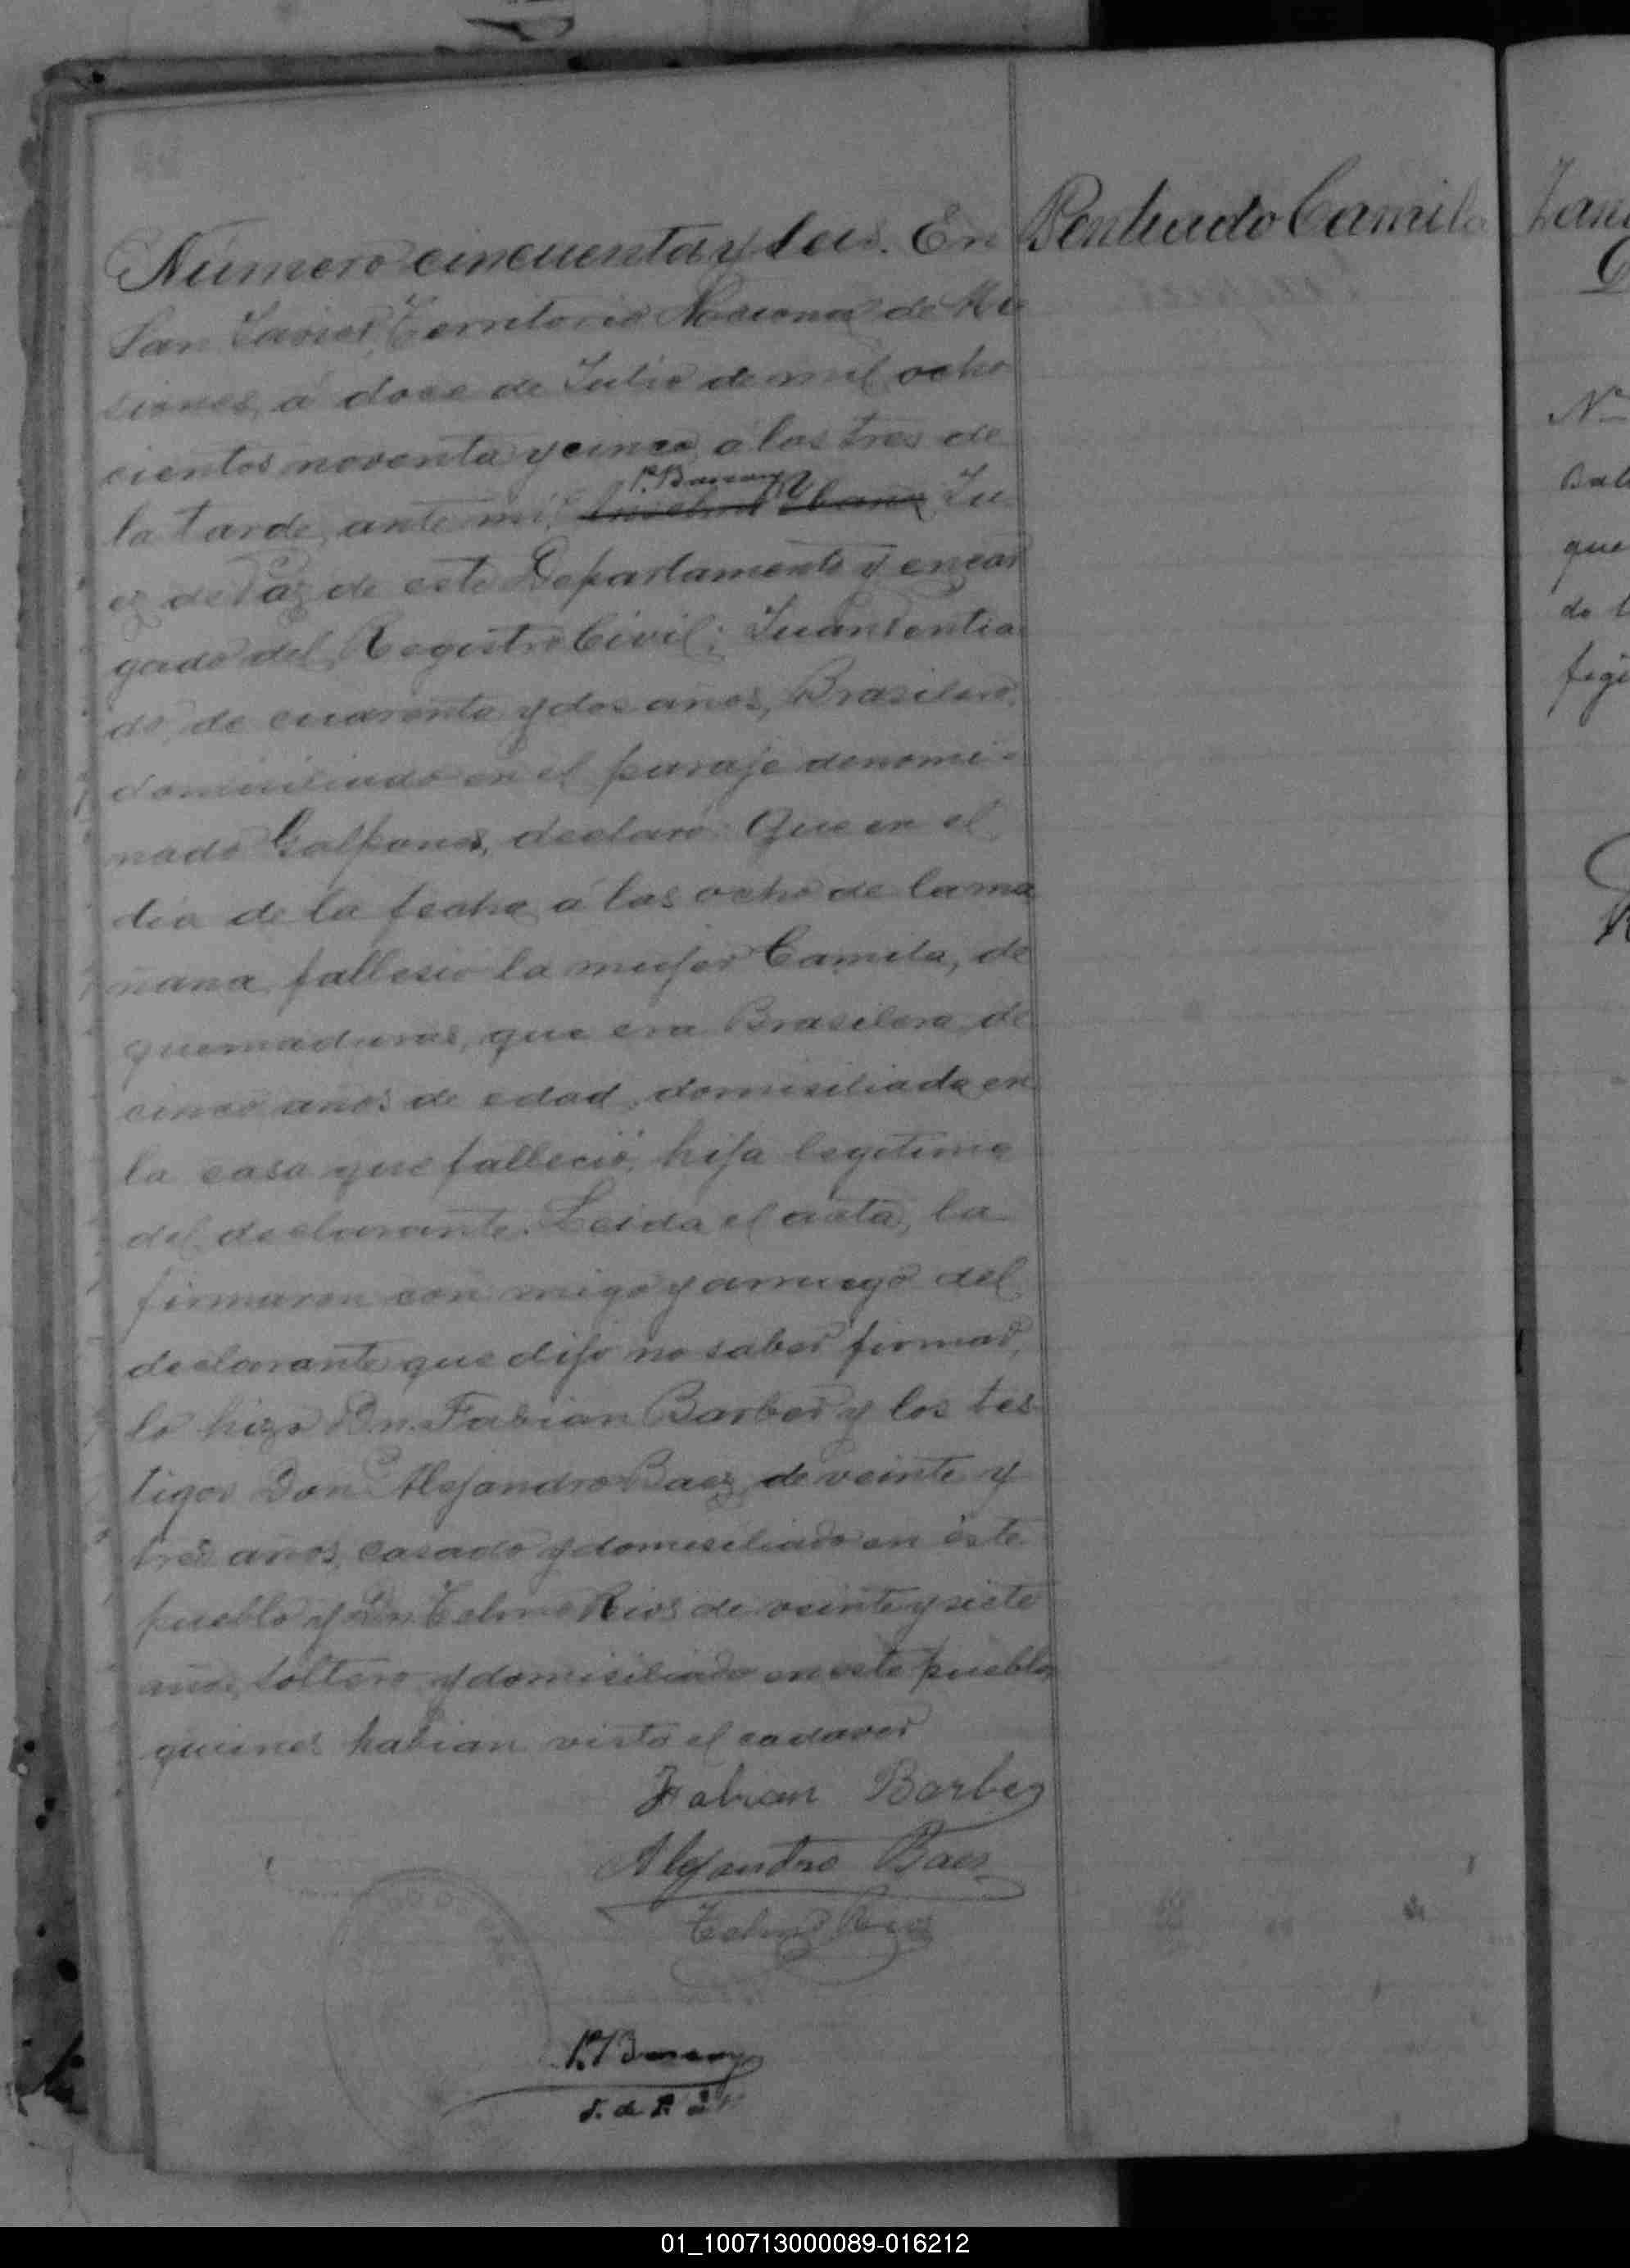 Número cincuenta y seis. En
Pentiado Camila
San Javier, Territorio Nacional de Mi
siones, á doce de Julio de mil ocho
cientos noventa y cinco, a las tres de
la tarde, ante mi, Ju
ez de Paz de este Departamento y encar
gado del Registro Civil; Juan Pentia
do, de cuarenta y dos años, Brasilero,
domisiliado en el paraje denomi-
nado Galpones, declaró: Que en el
dia de la fecha a las ocho de la ma
ñana, fallesio la mujer Camila, de
quemaduras, que era Brasilera, de
cinco años de edad, domisiliada en
la casa que falleció, hija legitima
del declarante. Leida el acta, la
firmaron con migo y arruego del
declarante que dijo no saber firmar,
lo hizo Dn. Fabian Barber y los tes
tigos Don Alejandro Baez, de veinte y
tres años, casado y domisiliado en este
pueblo y Dn. Telmo Rios de veinte y siete
años, soltero y domisiliado en este pueblo,
quienes habian visto el cadaver
Fabian Barber
Alejandro Baez
Telmo Rios
J. de P.
Nº
que
01_100713000089-016212